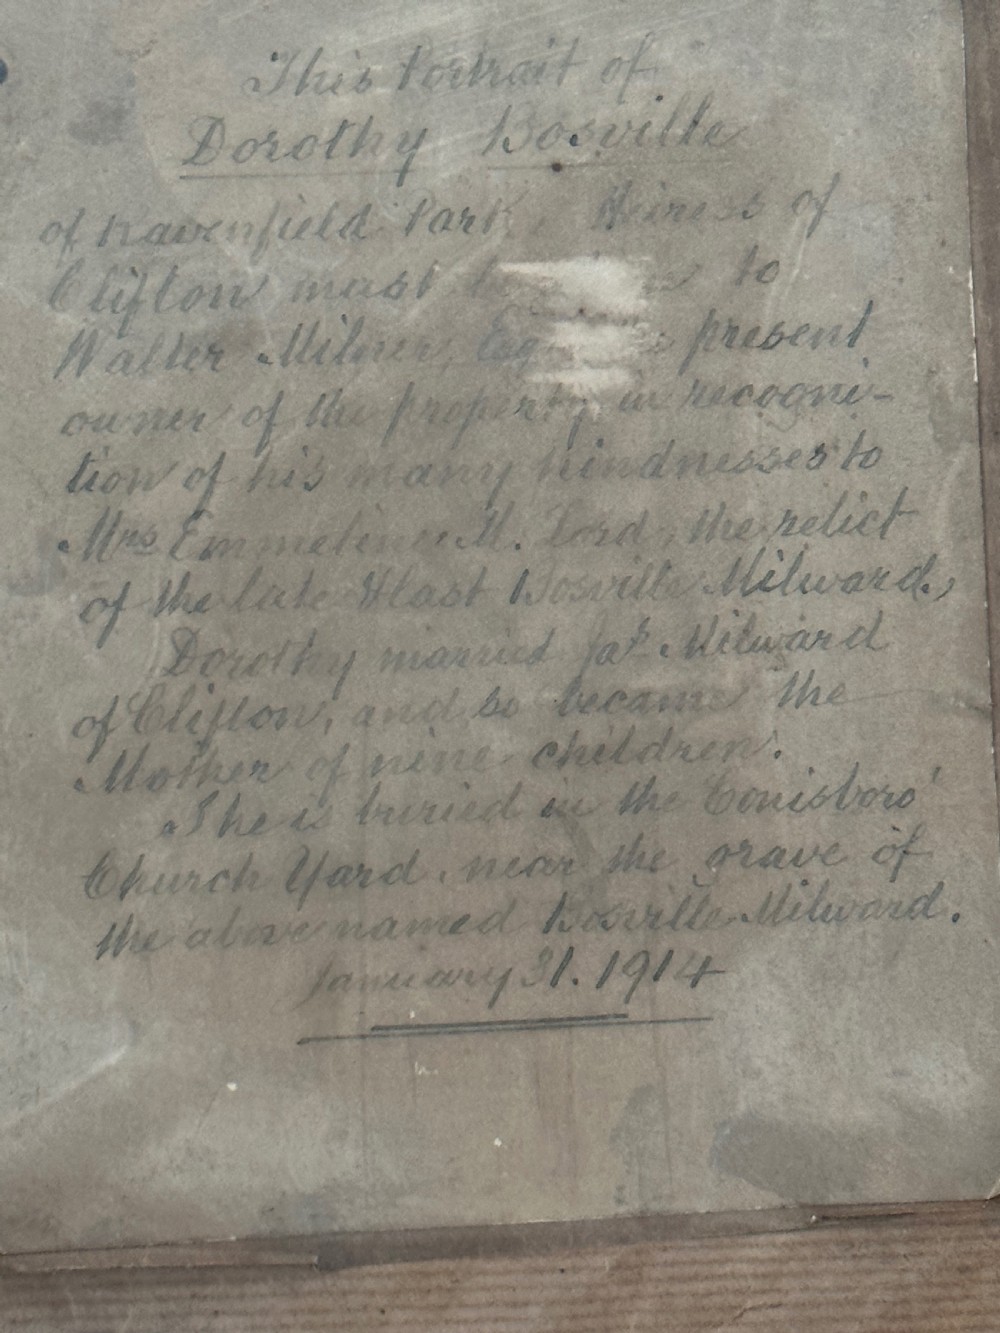 This Portrait of
Dorothy Bosville
of Ravenfield Park, Heiress of
Clifton must to
Walter Milner, Esq present
owner of the property, in recogni-
tion of his many kindnesses to
Mrs Emmeline M. Lord, the relict
of the late Hast Bosville Milward,
Dorothy married Jas. Milward
of Clifton, and so became the
Mother of nine children.
She is buried in the Conisboro'
Church Yard, near the grave of
the above named Bosville Milward.
January 31. 1914